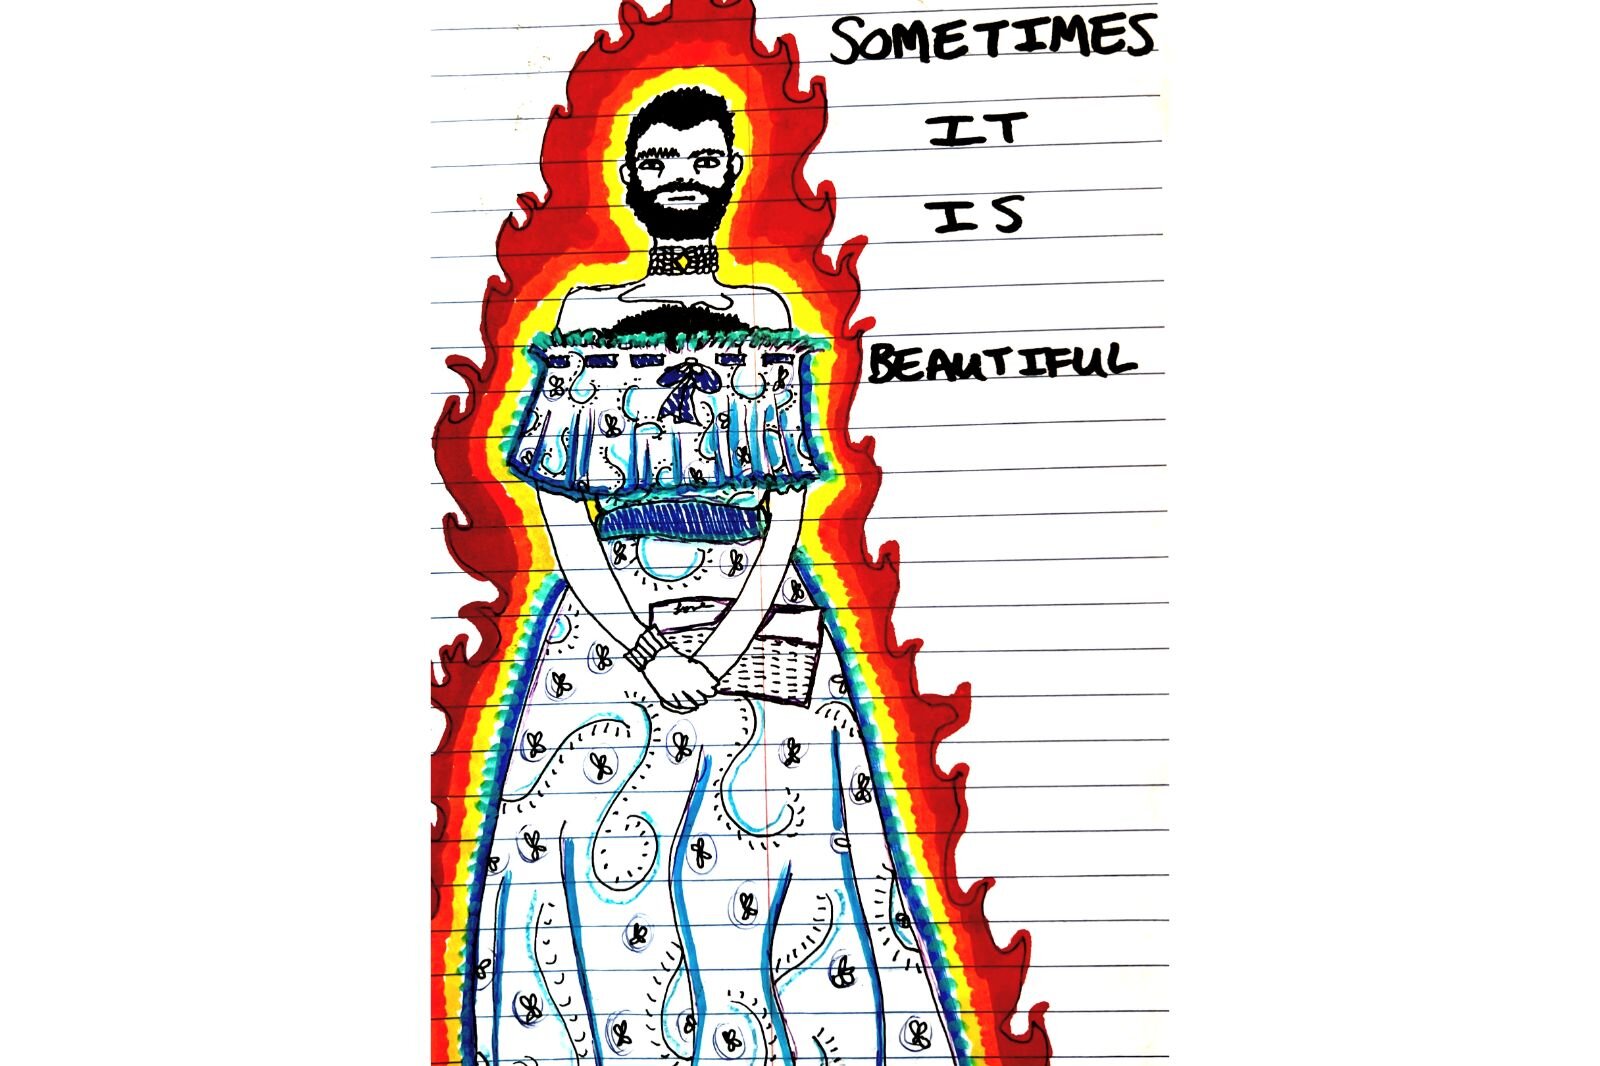 SOMETIMES
IT
IS
BEAUTIFUL
love